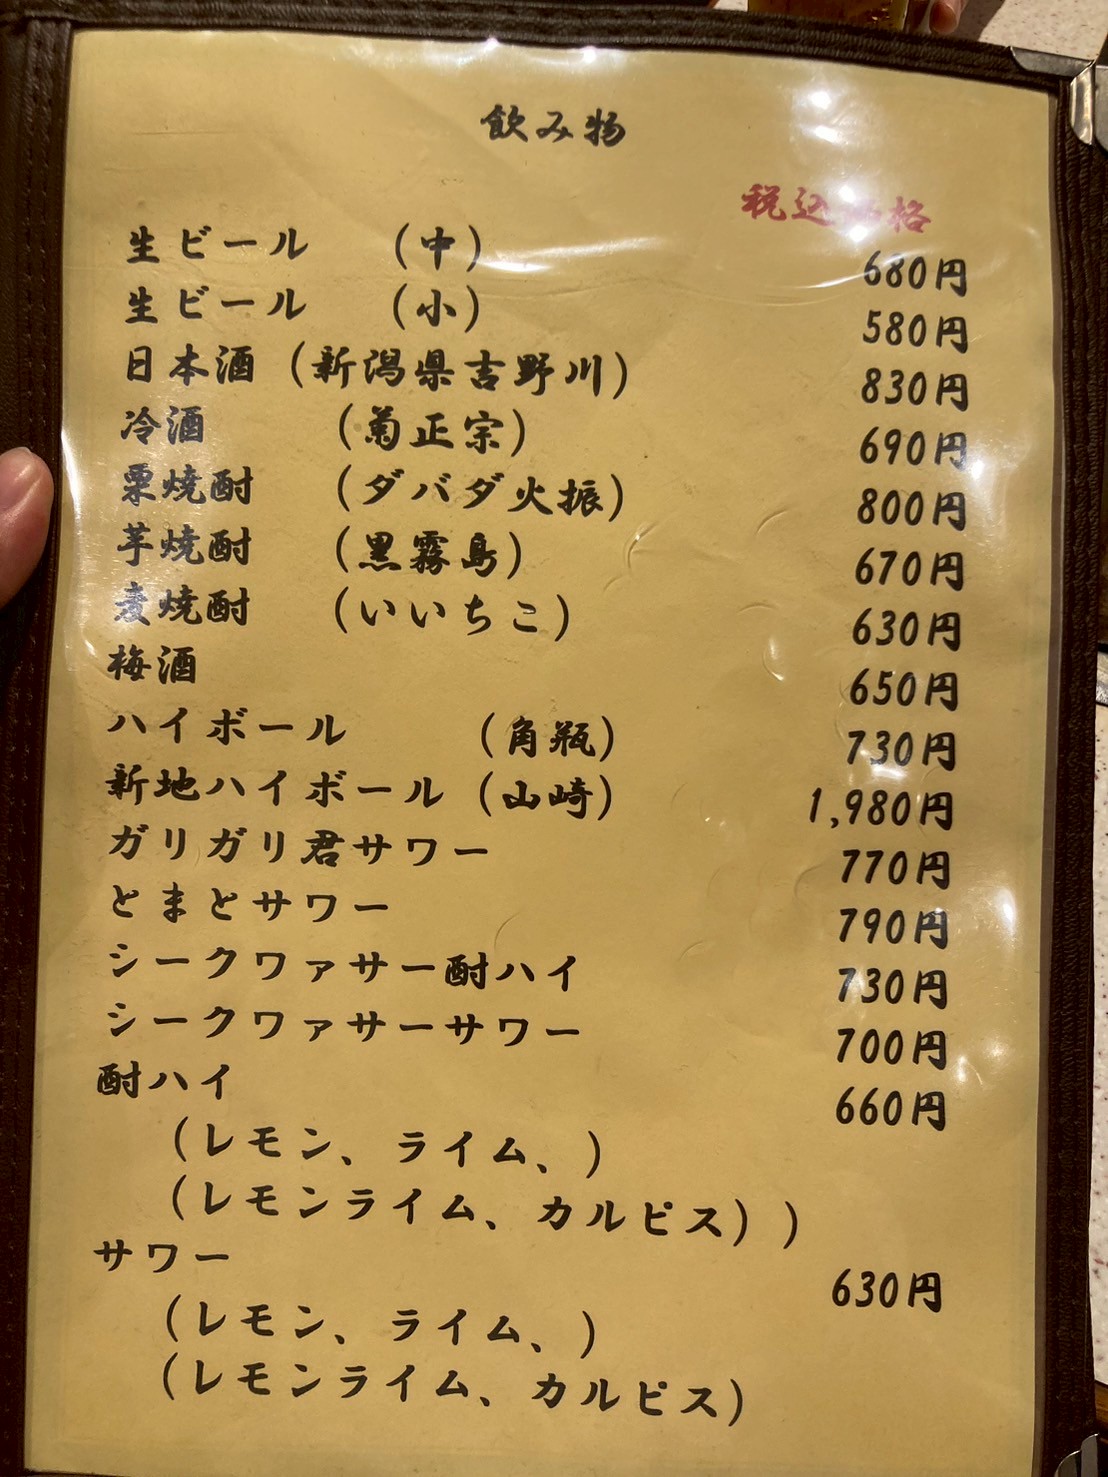 飲み物
税込価格
生ビール (中) 680円
生ビール (小) 580円
日本酒 (新潟県吉野川) 830円
冷酒 (菊正宗) 690円
栗焼酎 (ダバダ火振) 800円
芋焼酎 (黒霧島) 670円
麦焼酎 (いいちこ) 630円
梅酒 650円
ハイボール (角瓶) 730円
新地ハイボール (山崎) 1,980円
ガリガリ君サワー 770円
とまとサワー 790円
シークワァサー酎ハイ 730円
シークワァサーサワー 700円
酎ハイ 660円
(レモン、ライム、)
(レモンライム、カルピス))
サワー 630円
(レモン、ライム、)
(レモンライム、カルピス)